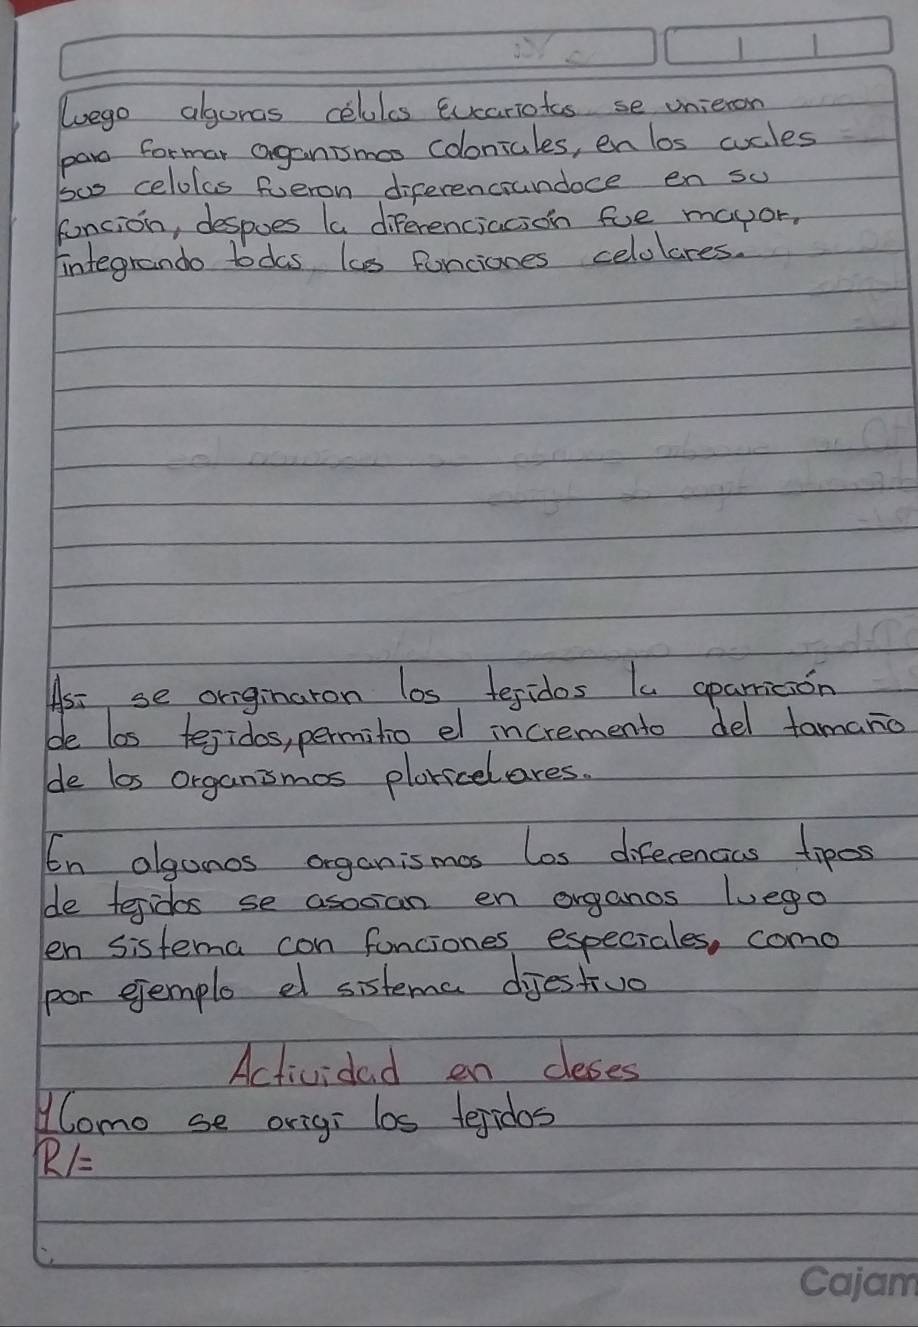 luego algunas células Eucariotas se unieron
para formar organismos coloniales, en los cuales
sus celulas fueron diferenciandoce en su
función, despues la diferenciación fue mayor,
integrando todas las funciones celulares.
Asi se originaron los tejidos la aparrición
de los tejidos, permitio el incremento del tamaño
de los organismos pluricelares.
En algunos organismos los diferencias tipos
de tejidos se asocian en organos luego
en sistema con funciones especiales, como
por ejemplo el sistema dijestivo
Actividad en clases
1 Como se origi los tejidos
R/=
Cajam